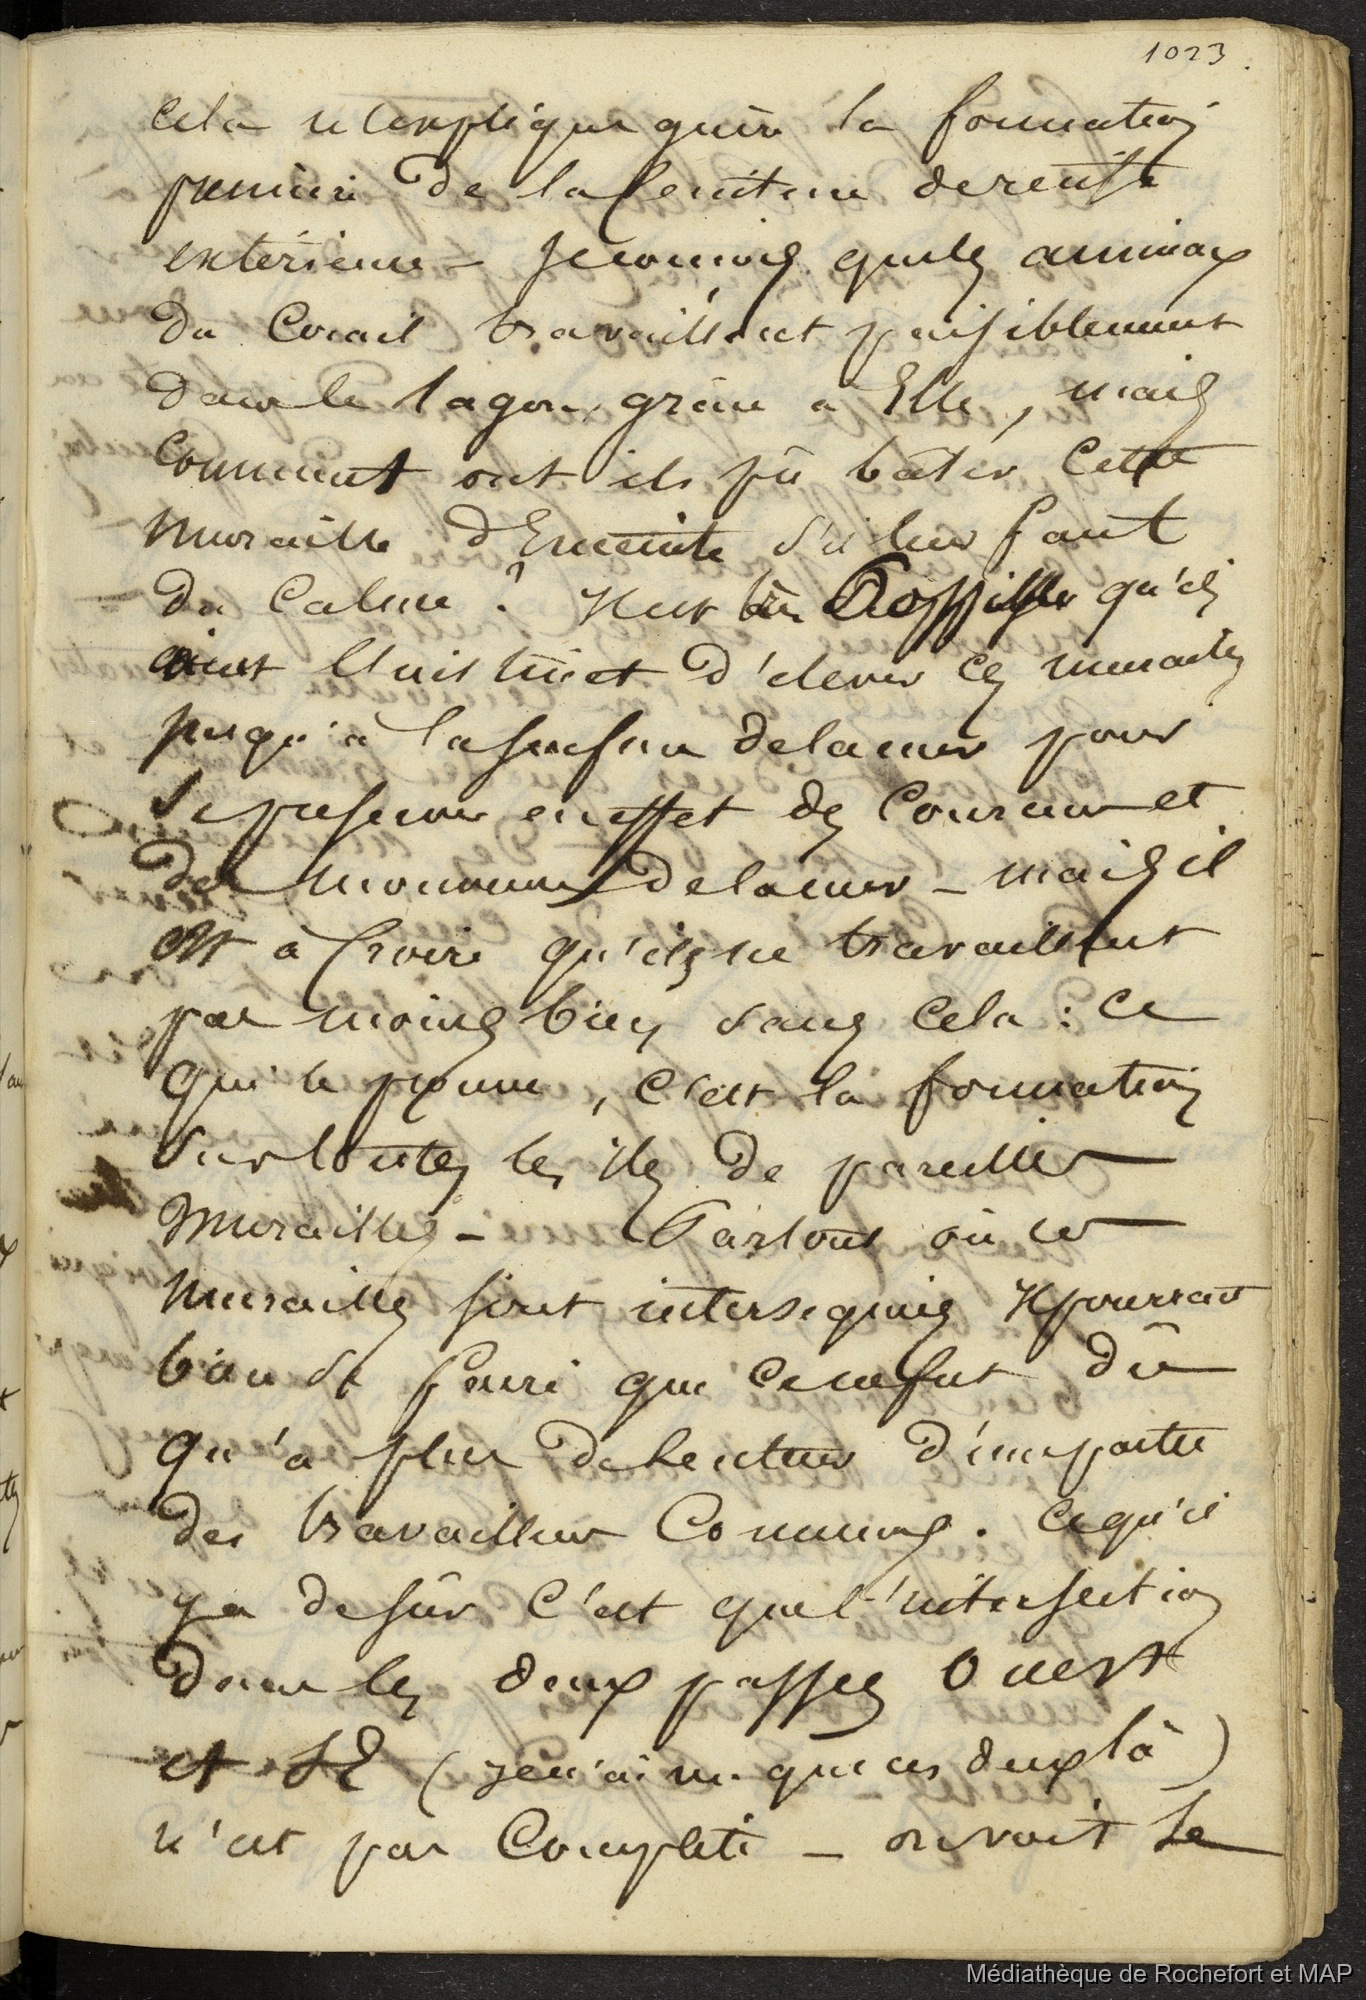 1023.
cela n'explique guère la formation
première de la ceinture de récifs
extérieure – je conçois que les animaux
du Corail travaillent paisiblement
dans le lagon, grâce à Elle, mais
comment ont ils pû bâtir cette
muraille d'Enceinte s'il leur faut
du Calme ? Il est très Possible qu'ils
aient l'instinct d'élever ces murailles
jusqu'à la surface de la mer pour
se préserver en effet des Courans et
des mouvemens de la mer – mais il
est à croire qu'ils ne travaillent
pas moins bien sans cela : ce
qui le prouve, c'est la formation
sur toutes les îles de pareilles
murailles – Partout où ces
murailles sont interrompues il pourrait
bien se faire que ce ne fut dû
qu'à plus de lenteur d'une partie
des travailleurs Communs. ce qu'il
y a de sûr c'est que l'intersection
dans les deux passes Ouest
et SE (je n'ai vu que ces deux là)
n'est pas Complète – on voit le
Médiathèque de Rochefort et MAP